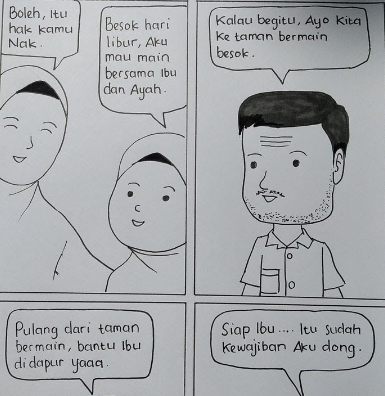 Boleh, Itu
hak kamu
Nak.
Besok hari
libur, Aku
mau main
bersama Ibu
dan Ayah.
Kalau begitu, Ayo Kita
Ke taman bermain
besok.
Pulang dari taman
bermain, bantu Ibu
di dapur yaaa.
Siap Ibu.... Itu sudah
Kewajiban Aku dong.